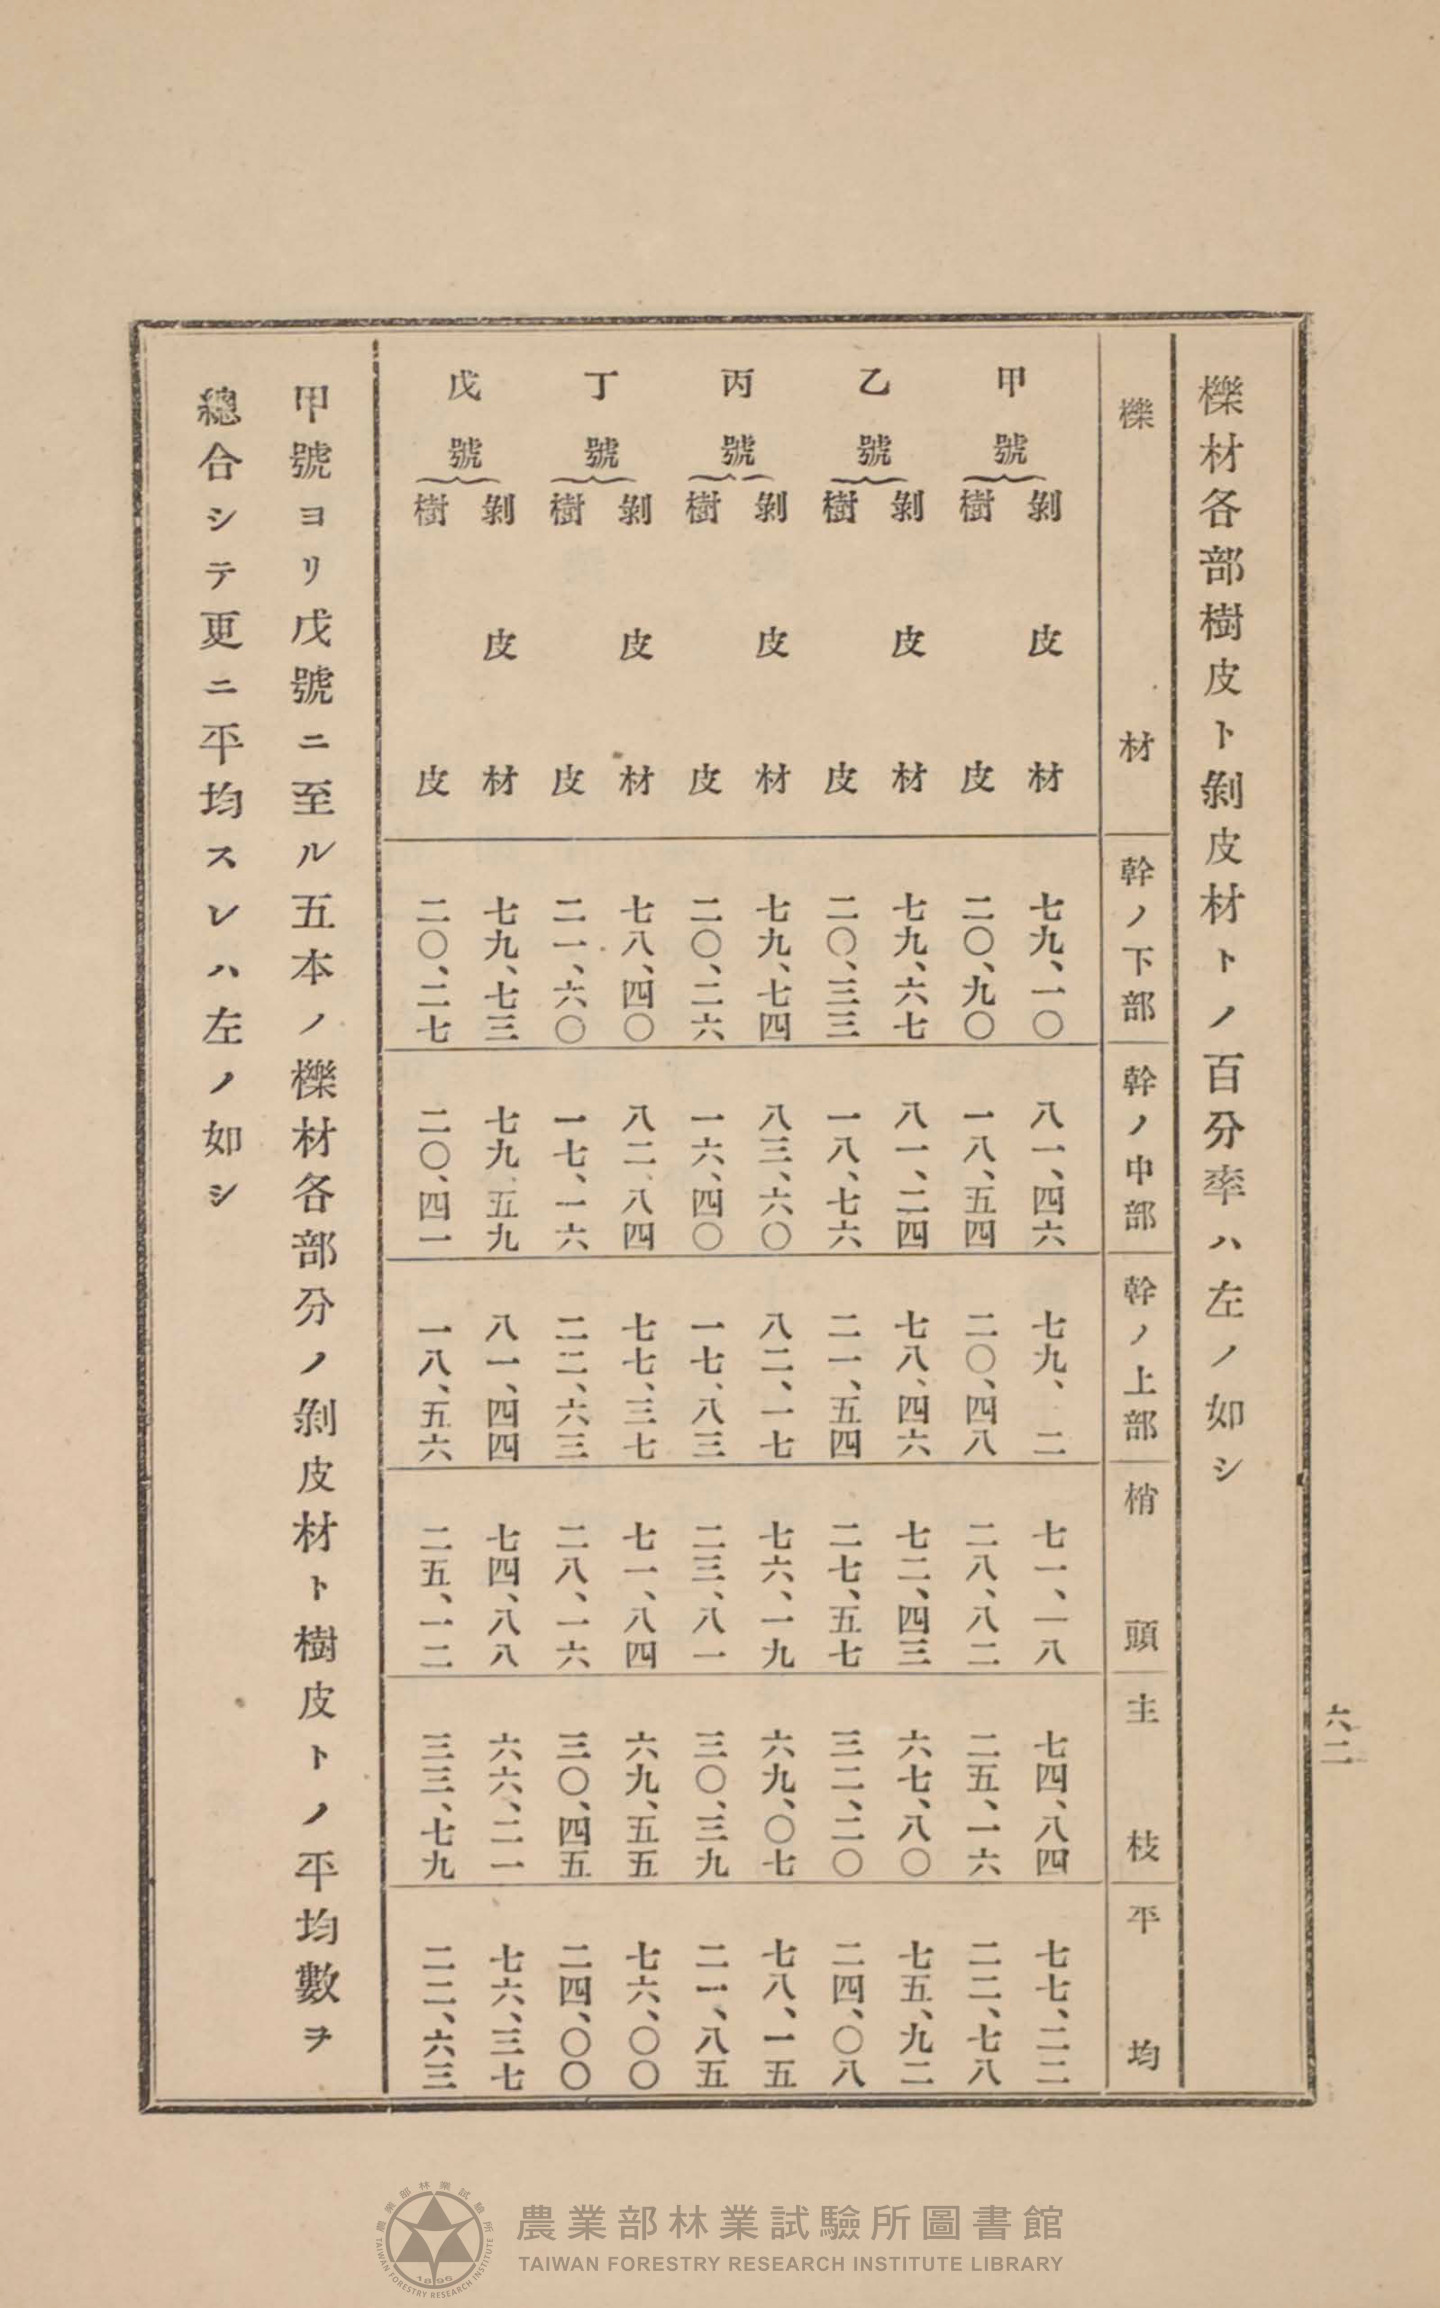 櫟材各部樹皮ト剝皮材トノ百分率ハ左ノ如シ
櫟材 幹ノ下部 幹ノ中部 幹ノ上部 梢頭 主枝 平均
甲號 剝皮材 七九、一〇 八一、四六 七九、二 七一、一八 七四、八四 七七、二二
樹皮 二〇、九〇 一八、五四 二〇、四八 二八、八二 二五、一六 二二、七八
乙號 剝皮材 七九、六七 八一、二四 七八、四六 七二、四三 六七、八〇 七五、九二
樹皮 二〇、三三 一八、七六 二一、五四 二七、五七 三二、二〇 二四、〇八
丙號 剝皮材 七九、七四 八三、六〇 八二、一七 七六、一九 六九、〇七 七八、一五
樹皮 二〇、二六 一六、四〇 一七、八三 二三、八一 三〇、三九 二一、八五
丁號 剝皮材 七八、四〇 八二、八四 七七、三七 七一、八四 六九、五五 七六、〇〇
樹皮 二一、六〇 一七、一六 二二、六三 二八、一六 三〇、四五 二四、〇〇
戊號 剝皮材 七九、七三 七九、五九 八一、四四 七四、八八 六六、二一 七六、三七
樹皮 二〇、二七 二〇、四一 一八、五六 二五、一二 三三、七九 二二、六三
甲號ヨリ戊號ニ至ル五本ノ櫟材各部分ノ剝皮材ト樹皮トノ平均數ヲ
總合シテ更ニ平均スレハ左ノ如シ
六二
農業部林業試驗所圖書館
TAIWAN FORESTRY RESEARCH INSTITUTE LIBRARY
農業部林業試驗所
TAIWAN FORESTRY RESEARCH INSTITUTE
1896